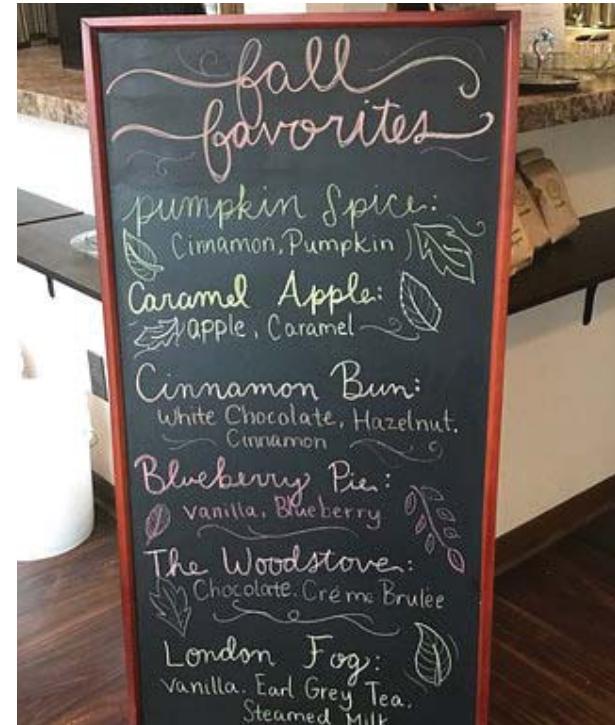 fall
favorites
pumpkin Spice:
Cinnamon, Pumpkin
Caramel Apple:
apple, Caramel
Cinnamon Bun:
White Chocolate, Hazelnut,
Cinnamon
Blueberry Pie:
vanilla, Blueberry
The Woodstove:
Chocolate, Créme Brulee
London Fog:
Vanilla, Earl Grey Tea,
Steamed Milk